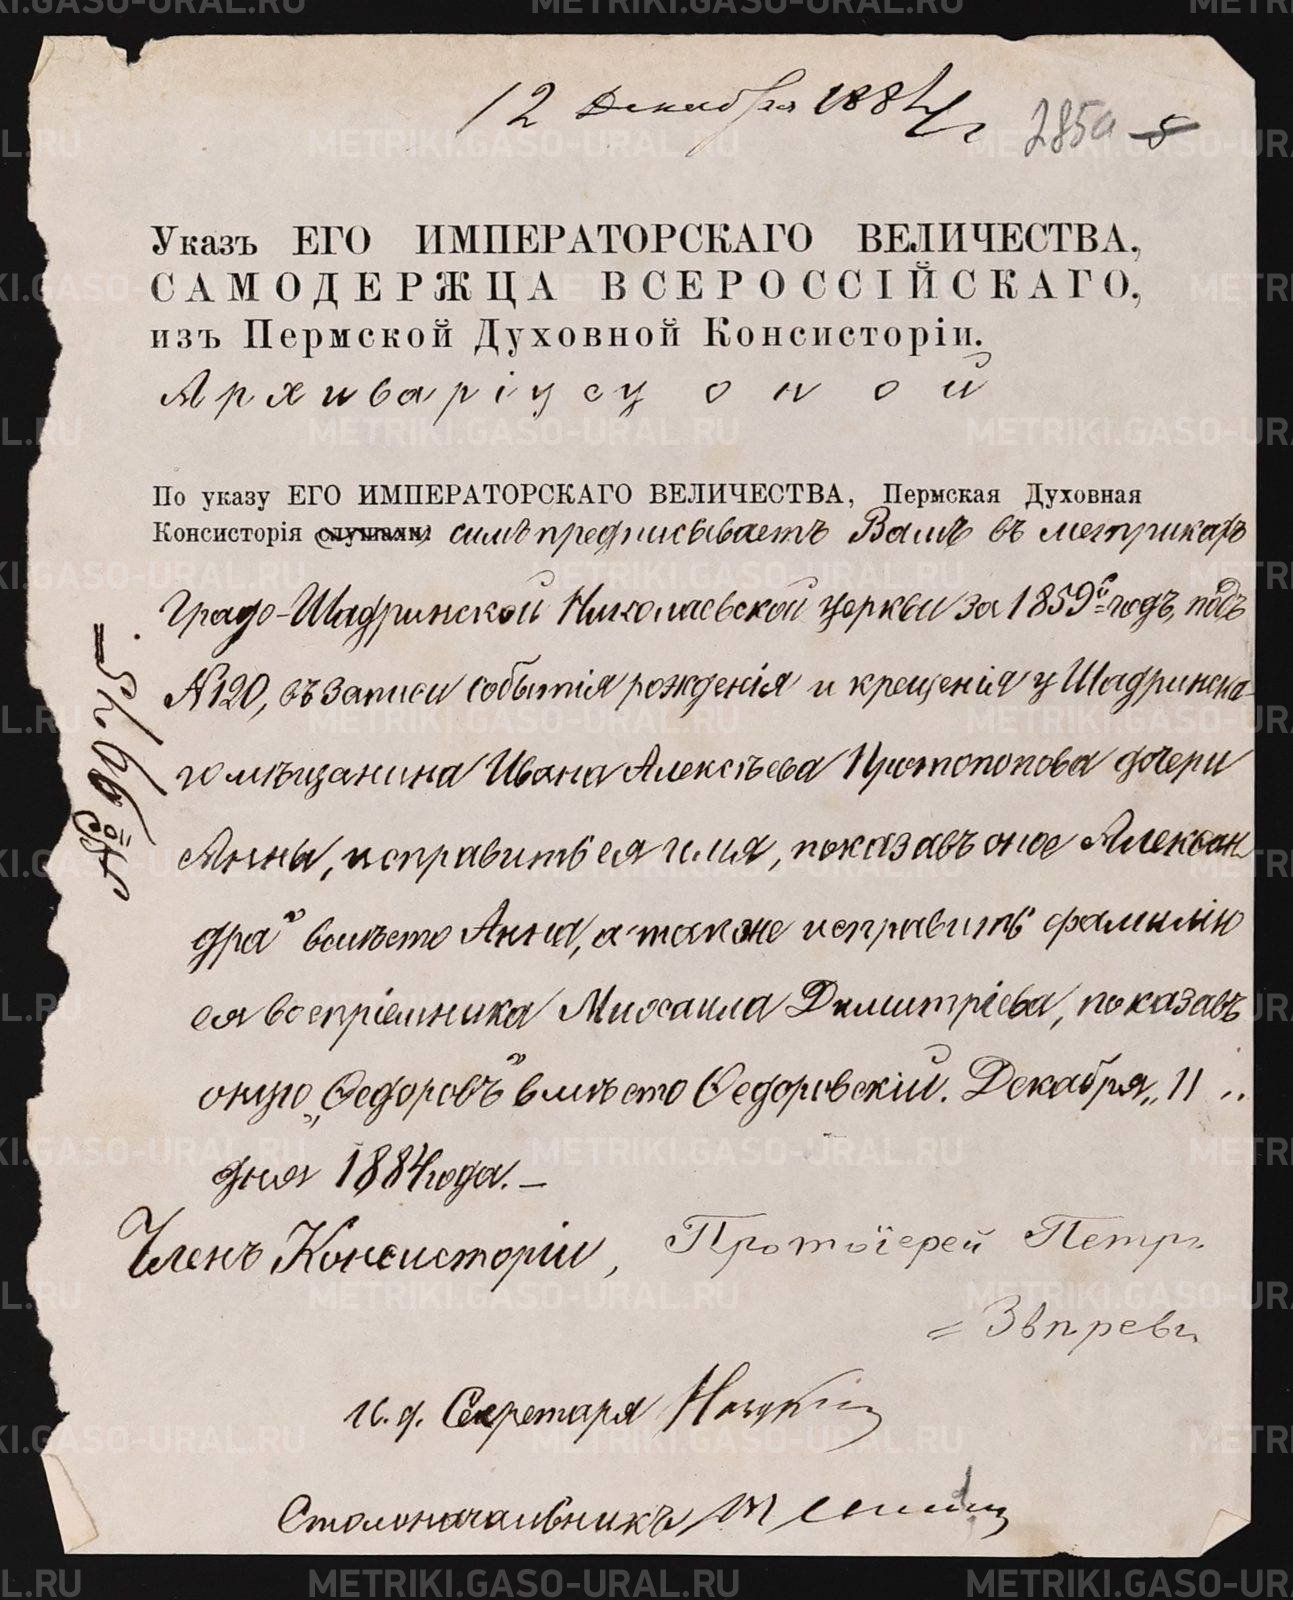 12 Декабря 1884 г
285а
Указъ ЕГО ИМПЕРАТОРСКАГО ВЕЛИЧЕСТВА,
САМОДЕРЖЦА ВСЕРОССІЙСКАГО,
изъ Пермской Духовной Консисторіи.
Архиваріусу оной
По указу ЕГО ИМПЕРАТОРСКАГО ВЕЛИЧЕСТВА, Пермская Духовная
Консисторія слушали: симъ предписываетъ Вамъ въ метрикахъ
Градо-Шадринской Николаевской церкви за 1859й годъ, подъ
№120, въ записи событія рожденія и крещенія у Шадринска-
го мѣщанина Ивана Алексѣева Протопопова дочери
Анны, исправить ея имя, показавъ оное Алексан
дра" вмѣсто Анна, а также исправить фамилію
ея воспріемника Михаила Димитріева, показавъ
оную „Ѳедоровъ" вмѣсто Ѳедоровскій. Декабря „11"
дня 1884 года. —
Членъ Консисторіи, Протоіерей Петръ
И. д. Секретаря
Столоначальникъ
METRIKI.GASO-URAL.RU